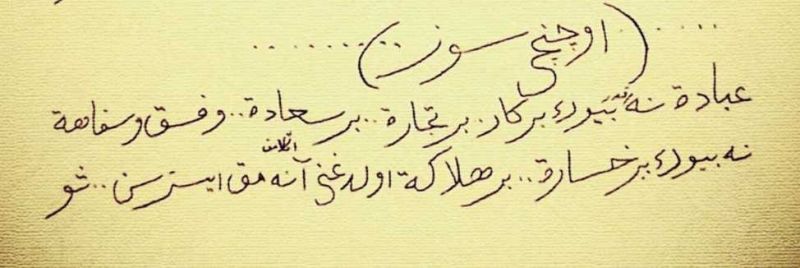 (اوچنجی سوز)
عبادة نه بيوك بر كار. بر تجارة.. بر سعادة.. وفسق وسفاهة
نه بيوك بر خسارة.. بر هلاكة اولدغنی آنه مق ايسترسن.. شو